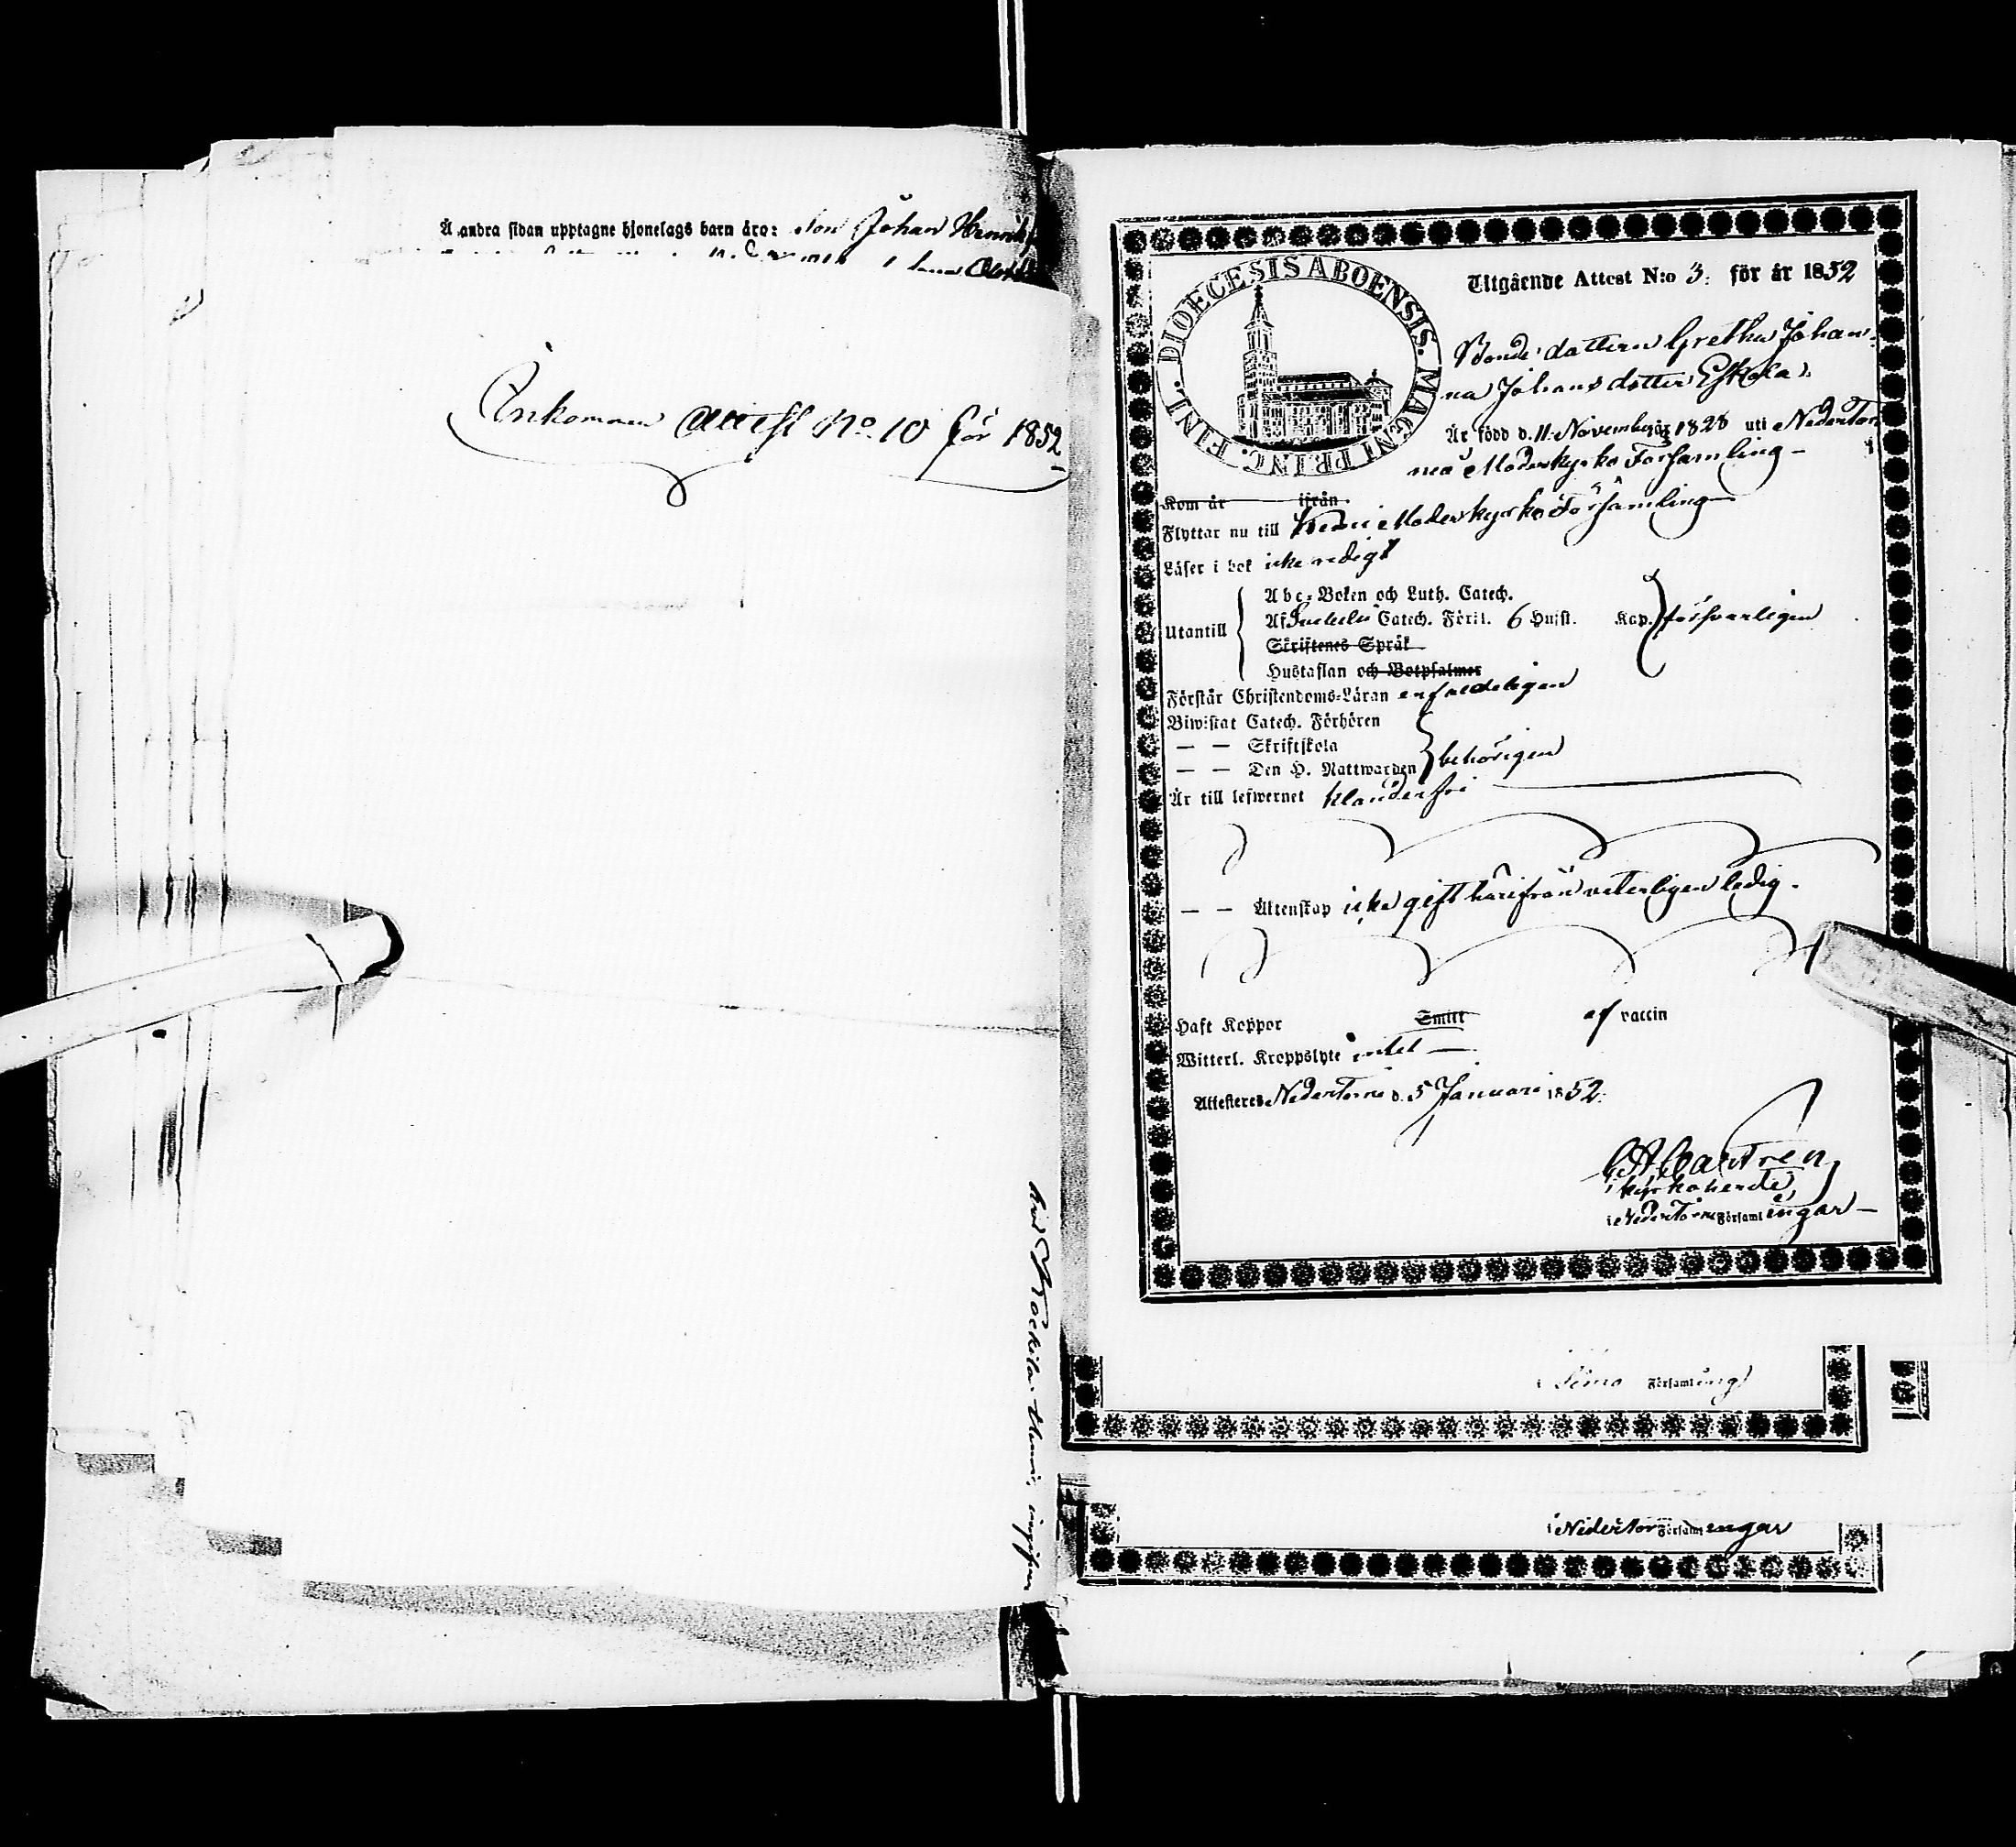 Å andra sidan upptagne hjonelags barn äro: son Johan Henrik
Ankommen attest No. 10 för 1852
DIOECESIS ABOENSIS. MAGNI PRINC. FINL.
Utgående Attest N:o 3. för år 1852
Bonde dottern Gretha Johan-
na Johansdotter Eskola
Är född d. 11 November år 1828 uti Neder Tor
neå Moderkyrko Församling –
Kom år ifrån
Flyttar nu till Kemi Moderkyrko Församling
Läser i bok icke redigt
Utantill
Abc-Boken och Luth. Catech.
Af Svebelii Catech. Förkl. 6 Hufst. Kap. försvarligen
Skriftenes Språk
Hustaflan och Botpsalmer
Förstår Christendoms-Läran enfaldeligen
Biwistat Catech. Förhören
— — Skriftskola
— — Den H. Nattwarden behörigen
Är till lefwernet klanderfri
— — Äktenskap icke gift härifrån veterligen ledig.
Haft Koppor Smitt af vaccin
Witterl. Kroppslyte intet —
Attesteres Neder Torne d. 5 Januari 1852.
Castrén
kyrkoherde
i Neder Torne Församlingar —
Simo Församling
i Neder Torne Församlingar